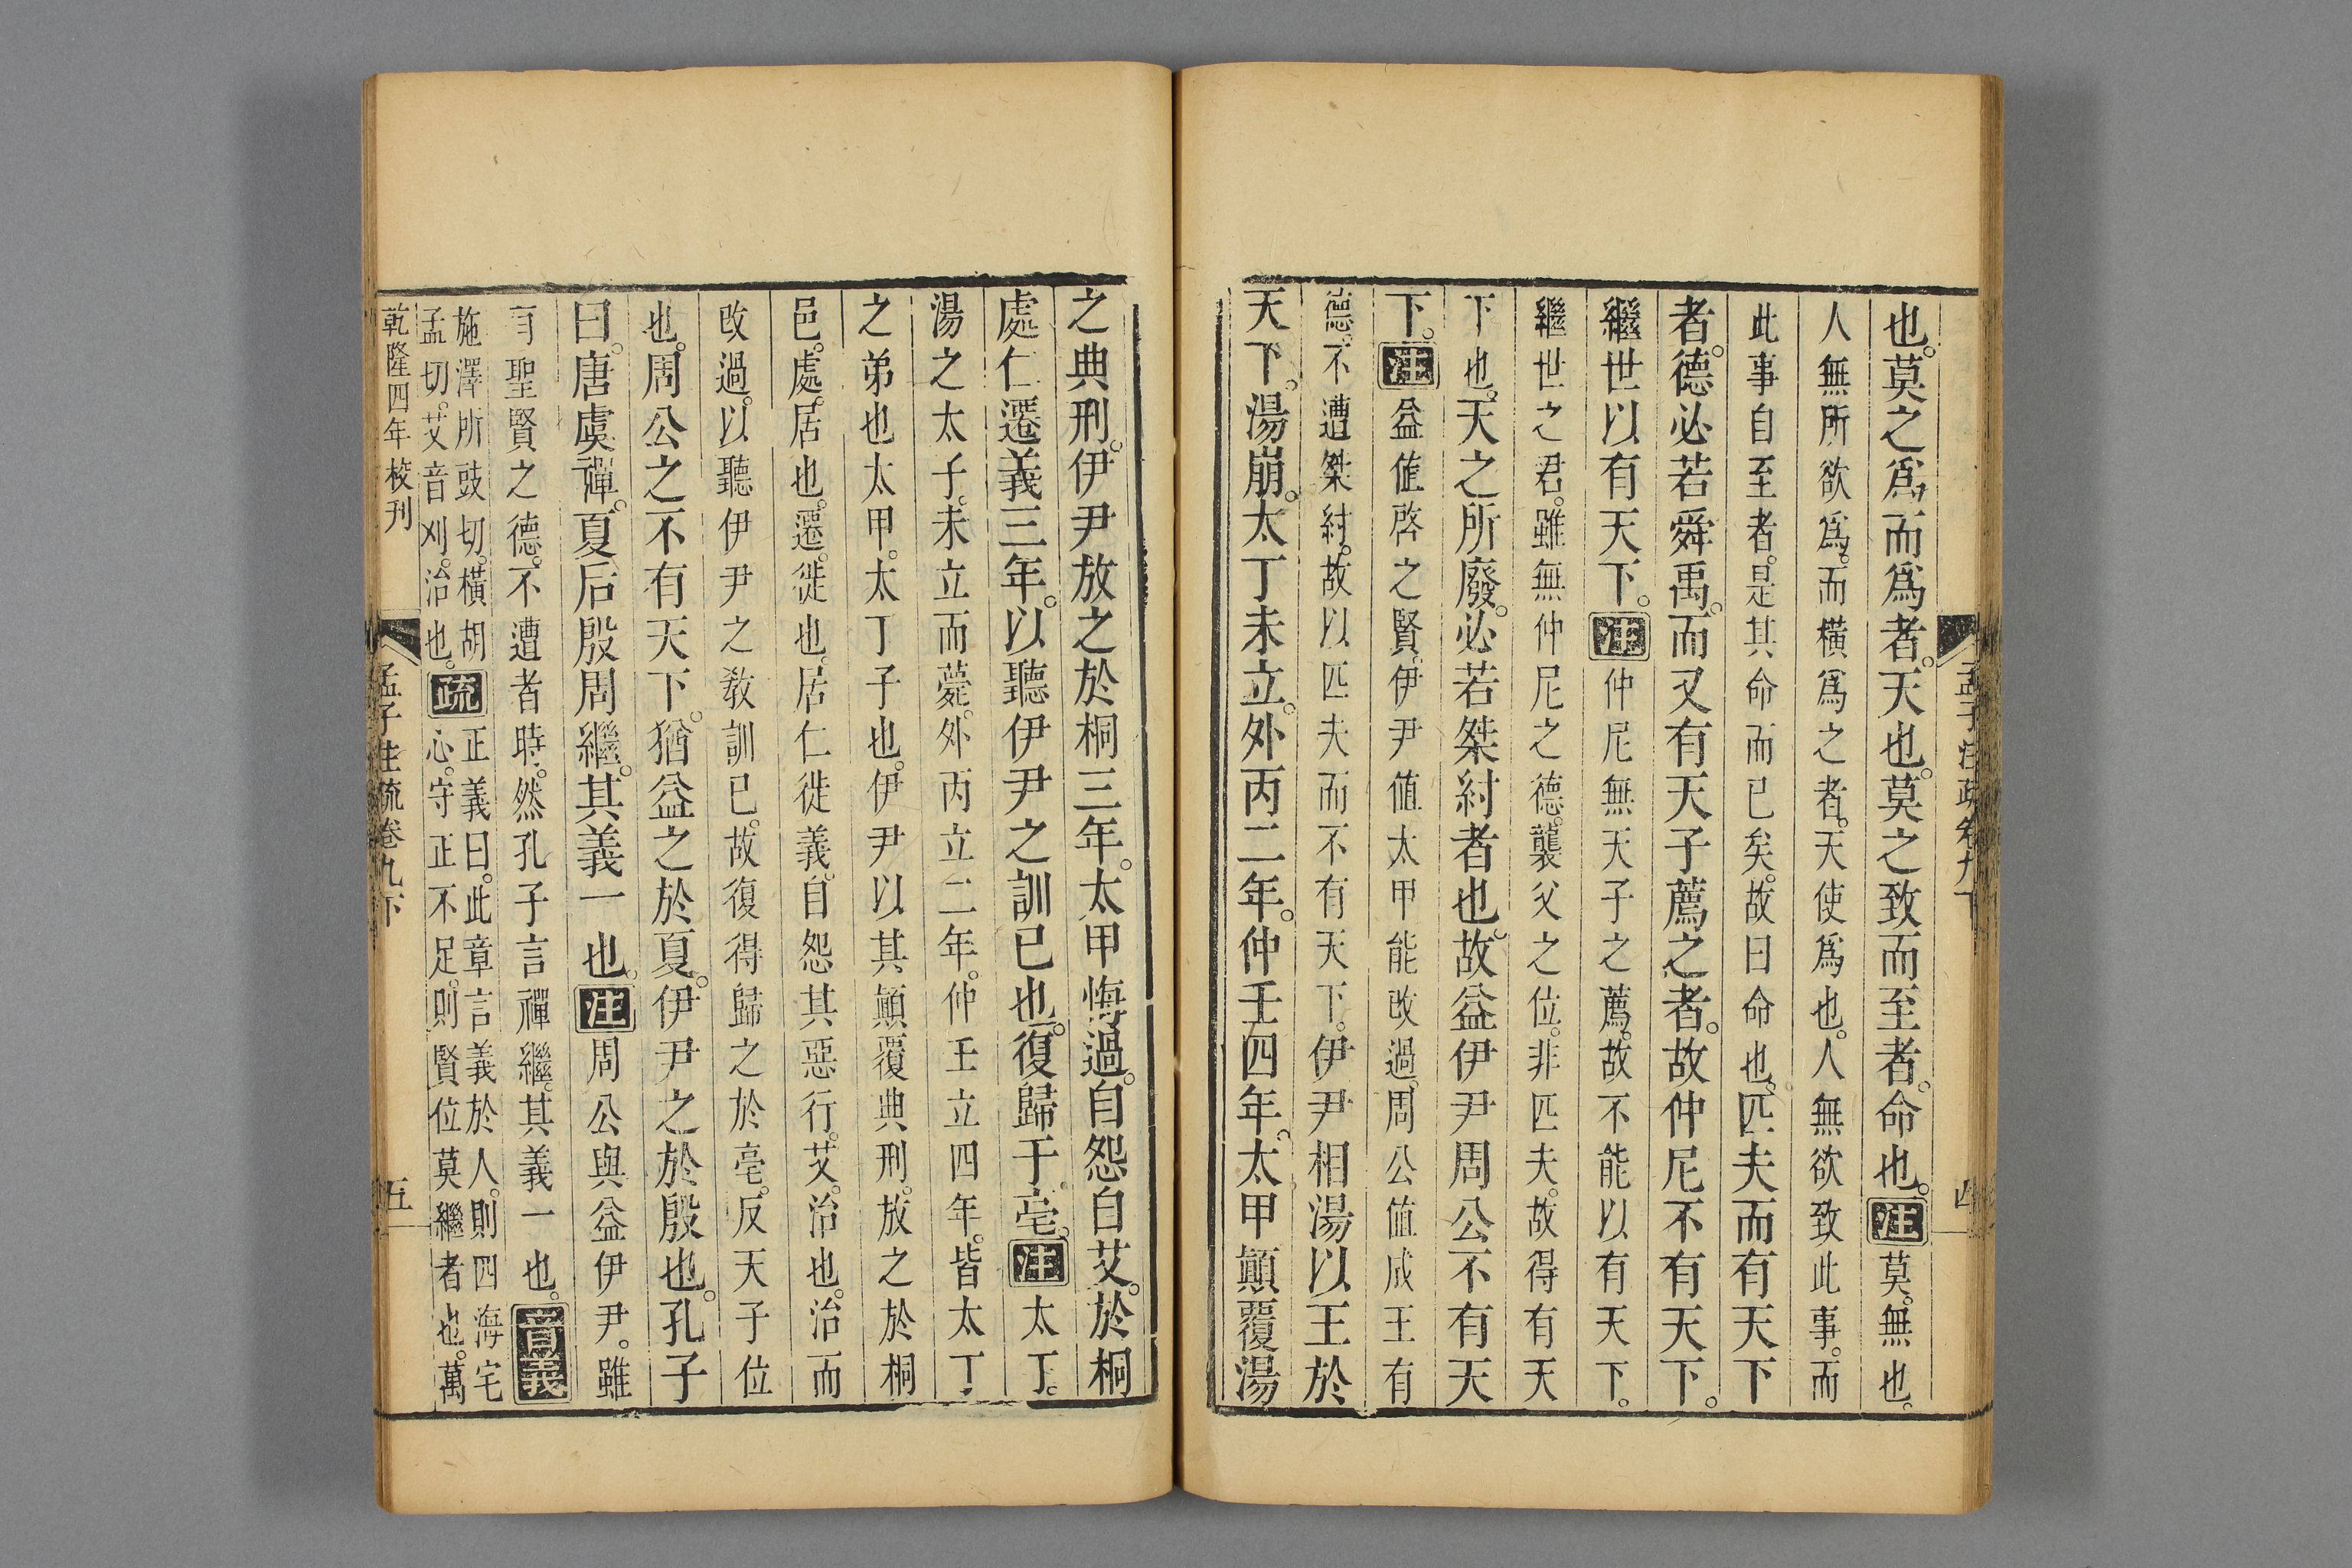 孟子注疏卷九下
四
也。莫之爲而爲者。天也。莫之致而至者。命也。注莫。無也。
人無所欲爲。而橫爲之者。天使爲也。人無欲致此事。而
此事自至者。是其命而已矣。故曰命也。匹夫而有天下
者。德必若舜禹。而又有天子薦之者。故仲尼不有天下。
繼世以有天下。注仲尼無天子之薦。故不能以有天下。
繼世之君。雖無仲尼之德。襲父之位。非匹夫。故得有天
下也。天之所廢。必若桀紂者也。故益伊尹周公不有天
下。注益值啓之賢。伊尹值太甲能改過。周公值成王有
德。不遭桀紂。故以匹夫而不有天下。伊尹相湯以王於
天下。湯崩。太丁未立。外丙二年。仲壬四年。太甲顛覆湯
之典刑。伊尹放之於桐三年。太甲悔過。自怨自艾。於桐
處仁遷義三年。以聽伊尹之訓已也。復歸于亳。注太丁。
湯之太子。未立而薨。外丙立二年。仲壬立四年。皆太丁
之弟也太甲。太丁子也。伊尹以其顛覆典刑。放之於桐
邑。處。居也。遷。徙也。居仁徙義。自怨其惡行。艾。治也。治而
改過。以聽伊尹之敎訓已。故復得歸之於亳。反天子位
也。周公之不有天下。猶益之於夏。伊尹之於殷也。孔子
曰。唐虞禪。夏后殷周繼。其義一也。注周公與益伊尹。雖
有聖賢之德。不遭者時。然孔子言禪繼。其義一也。音義
施澤所豉切。橫胡
孟切。艾音刈。治也。疏正義曰。此章言義於人。則四海宅
心。守正不足。則賢位莫繼者也。萬
乾隆四年校刊
孟子注疏卷九下
五